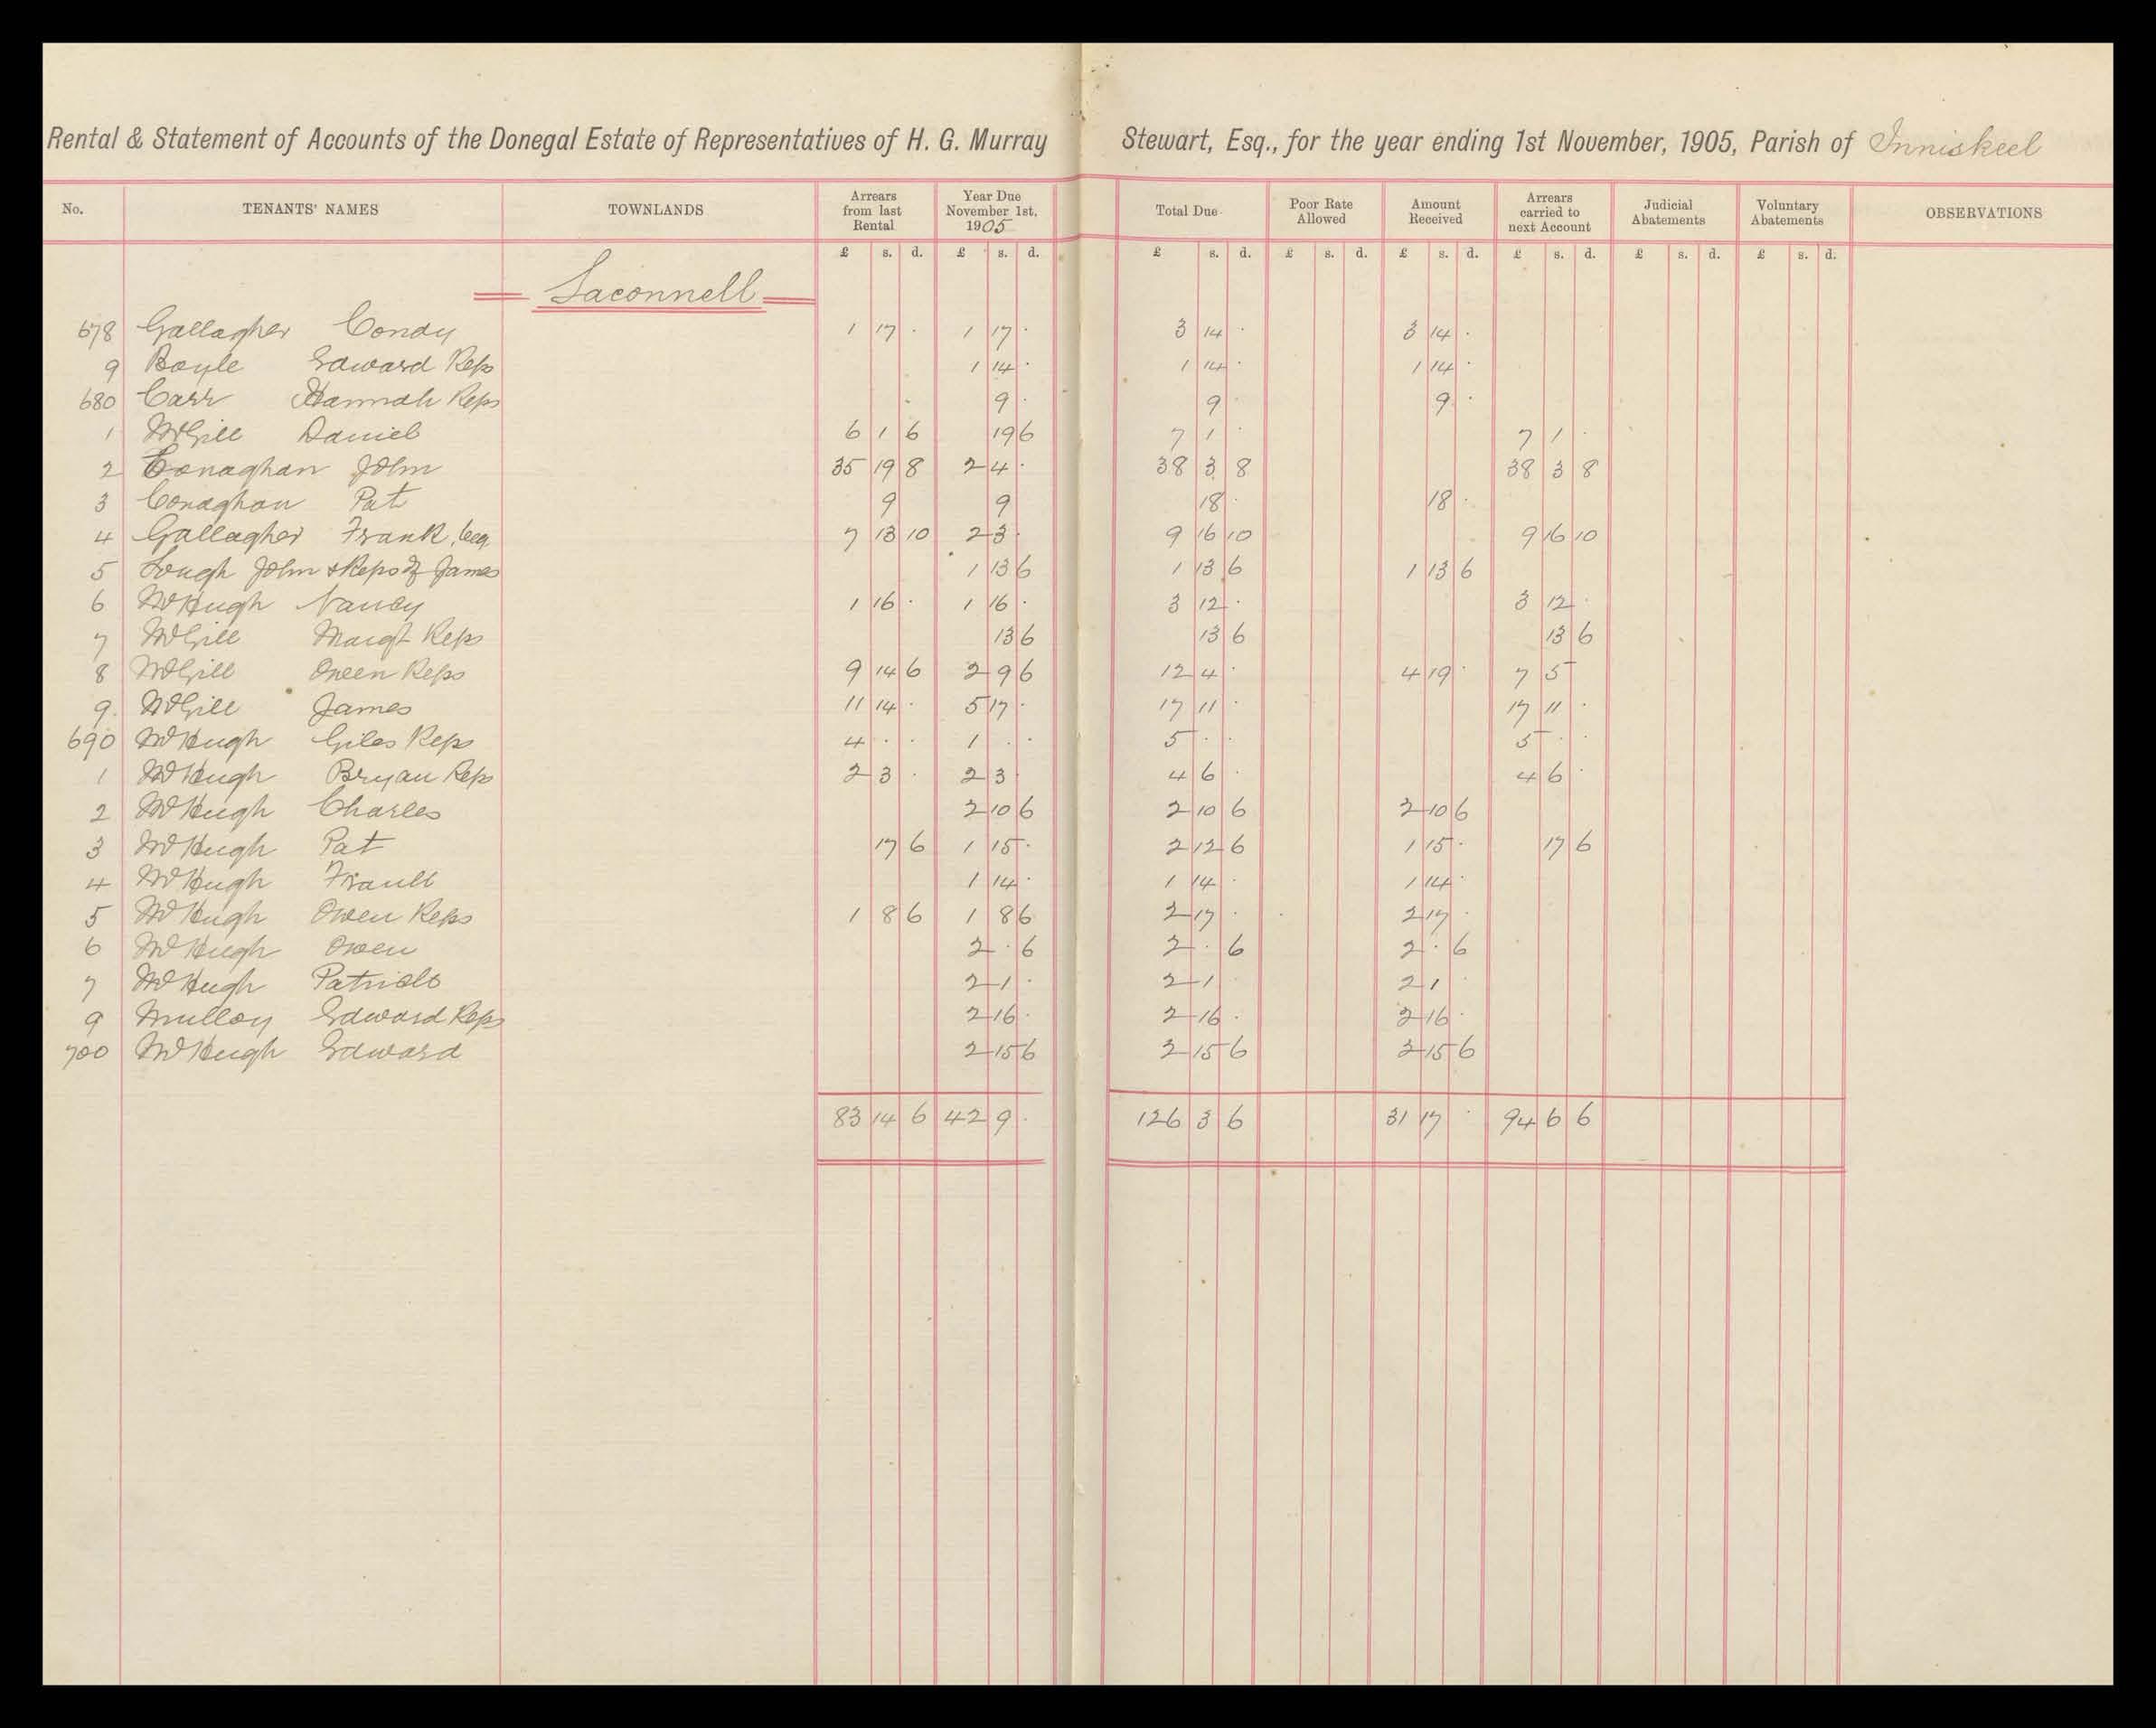 Rental & Statement of Accounts of the Donegal Estate of Representatives of H. G. Murray Stewart, Esq., for the year ending 1st November, 1905, Parish of Inniskeel
No. TENANTS' NAMES TOWNLANDS Arrears from last Rental Year Due November 1st, 1905 Total Due Poor Rate Allowed Amount Received Arrears carried to next Account Judicial Abatements Voluntary Abatements OBSERVATIONS
£ s. d. £ s. d. £ s. d. £ s. d. £ s. d. £ s. d. £ s. d. £ s. d.
Laconnell
678 Gallagher Condy 1 17 · 1 17 · 3 14 · 3 14 ·
9 Boyle Edward Reps 1 14 · 1 14 · 1 14 ·
680 Carr Hannah Reps 9 · 9 · 9 ·
1 McGill Daniel 6 1 6 19 6 7 1 · 7 1 ·
2 Conaghan John 35 19 8 2 4 · 38 3 8 38 3 8
3 Conaghan Pat 9 9 18 · 18 ·
4 Gallagher Frank 7 13 10 2 3 · 9 16 10 9 16 10
5 Lough John & Reps of James 1 13 6 1 13 6 1 13 6
6 McHugh Nancy 1 16 · 1 16 · 3 12 · 3 12 ·
7 McGill Margt Reps 13 6 13 6 13 6
8 McGill Oween Reps 9 14 6 2 9 6 12 4 · 4 19 · 7 5
9 McGill James 11 14 · 5 17 · 17 11 · 17 11 ·
690 McHugh Giles Reps 4 · · 1 · · 5 · · 5 · ·
1 McHugh Bryan Reps 2 3 · 2 3 · 4 6 · 4 6 ·
2 McHugh Charles 2 10 6 2 10 6 2 10 6
3 McHugh Pat 17 6 1 15 · 2 12 6 1 15 · 17 6
4 McHugh Frank 1 14 · 1 14 · 1 14 ·
5 McHugh Owen Reps 1 8 6 1 8 6 2 17 · 2 17 ·
6 McHugh Owen 2 · 6 2 · 6 2 · 6
7 McHugh Patrick 2 1 · 2 1 · 2 1
9 Mulloy Edward Reps 2 16 · 2 16 · 2 16 ·
700 McHugh Edward 2 15 6 2 15 6 2 15 6
83 14 6 42 9 · 126 3 6 31 17 · 94 6 6